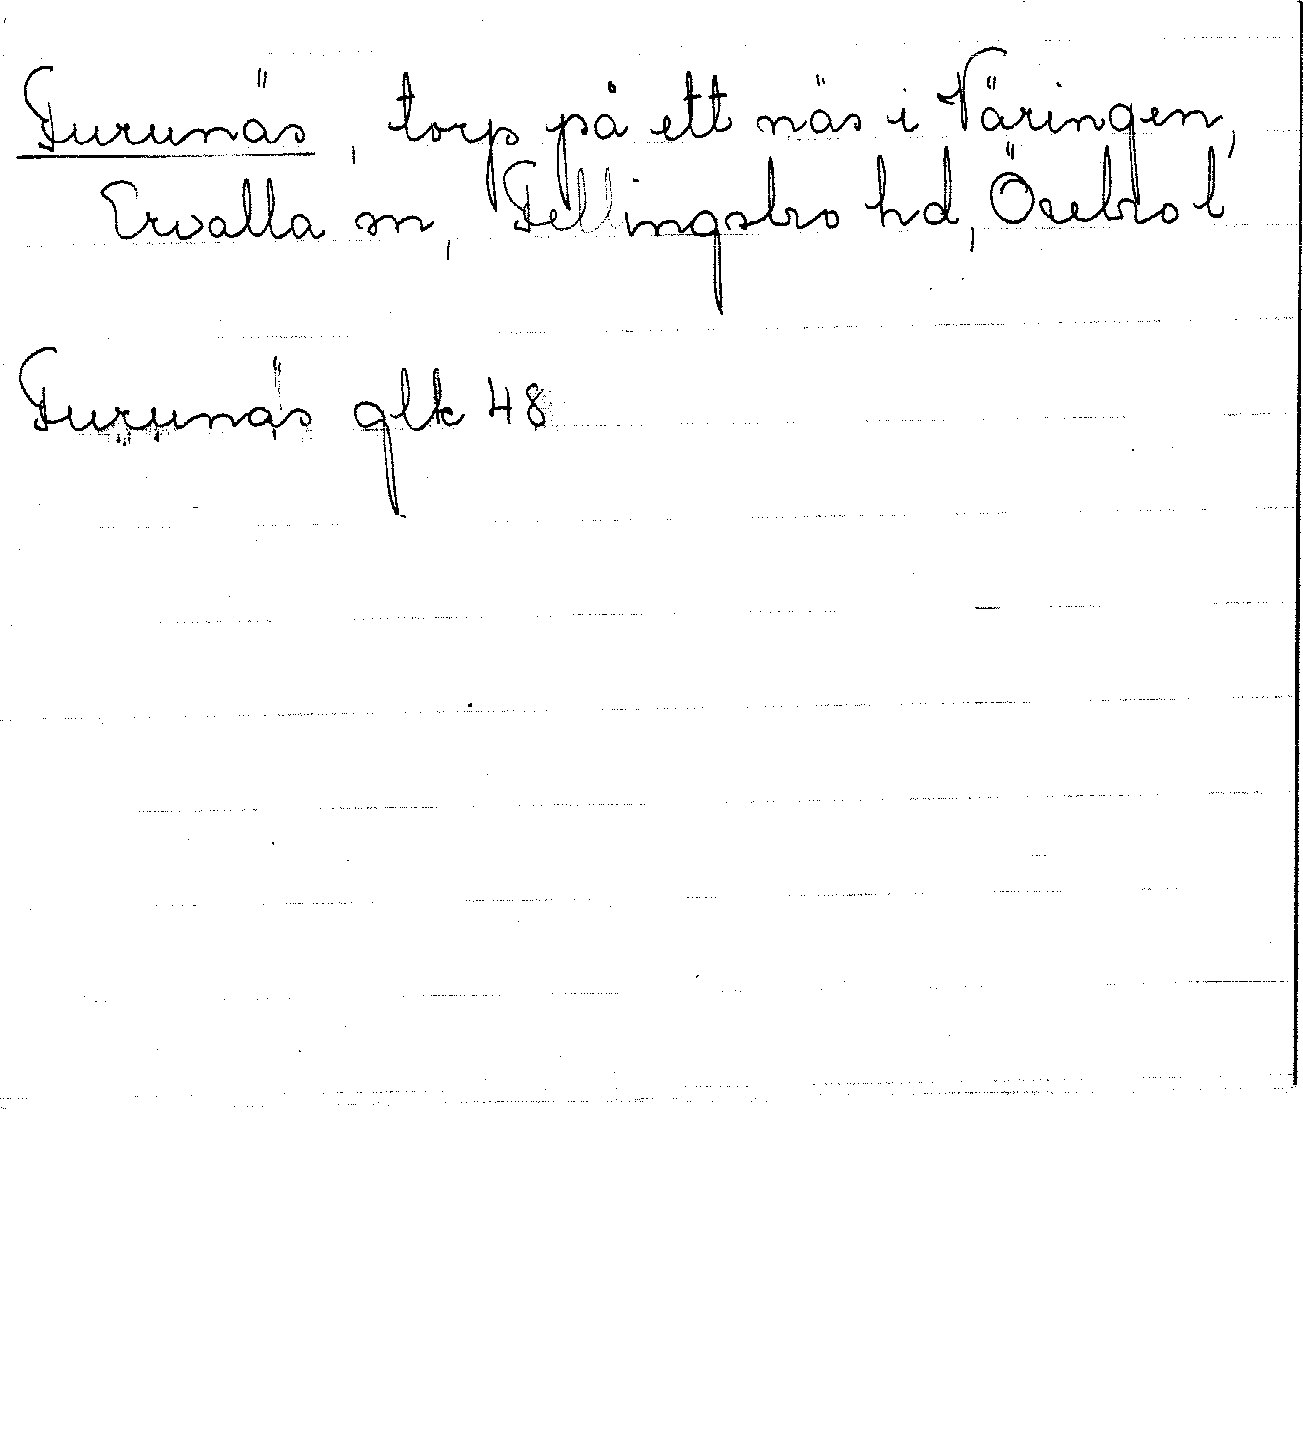 Furunäs, torp på ett näs i Väringen,
Ervalla sn, Fellingsbro hd, Örebro l
Furunäs glk 48